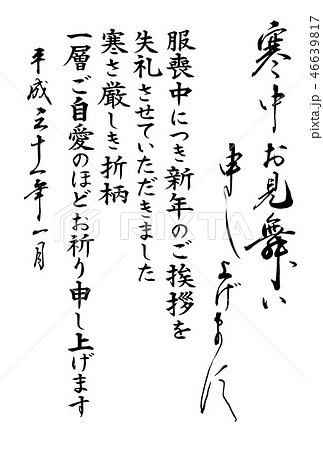 寒中お見舞い
申し上げます
服喪中につき新年のご挨拶を
失礼させていただきました
寒さ厳しき折柄
一層ご自愛のほどお祈り申し上げます
平成三十一年一月
PIXTA
pixta.jp - 46639817